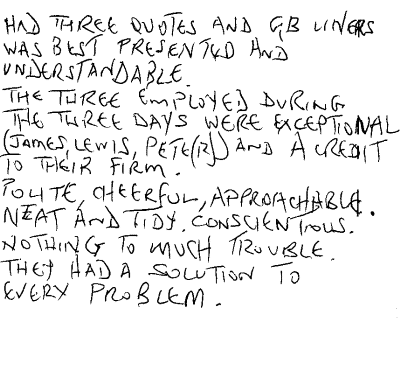 HAD THREE QUOTES AND GB LINERS
WAS BEST PRESENTED AND
UNDERSTANDABLE.
THE THREE EMPLOYED DURING
THE THREE DAYS WERE EXCEPTIONAL
(JAMES, LEWIS, PETE(R)) AND A CREDIT
TO THEIR FIRM.
POLITE, CHEERFUL, APPROACHABLE.
NEAT AND TIDY. CONSCIENTIOUS.
NOTHING TO MUCH TROUBLE.
THEY HAD A SOLUTION TO
EVERY PROBLEM.